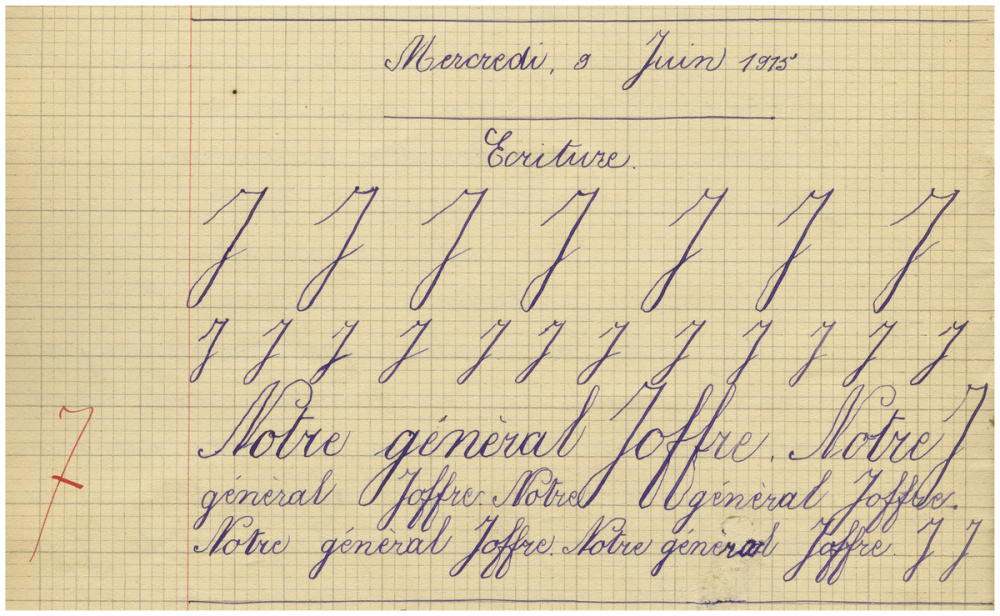 Mercredi, 9 Juin 1915
Ecriture.
J J J J J J J
J J J J J J J J J J J J
Notre général Joffre. Notre J
général Joffre. Notre général Joffre.
Notre général Joffre. Notre général Joffre. J J
7